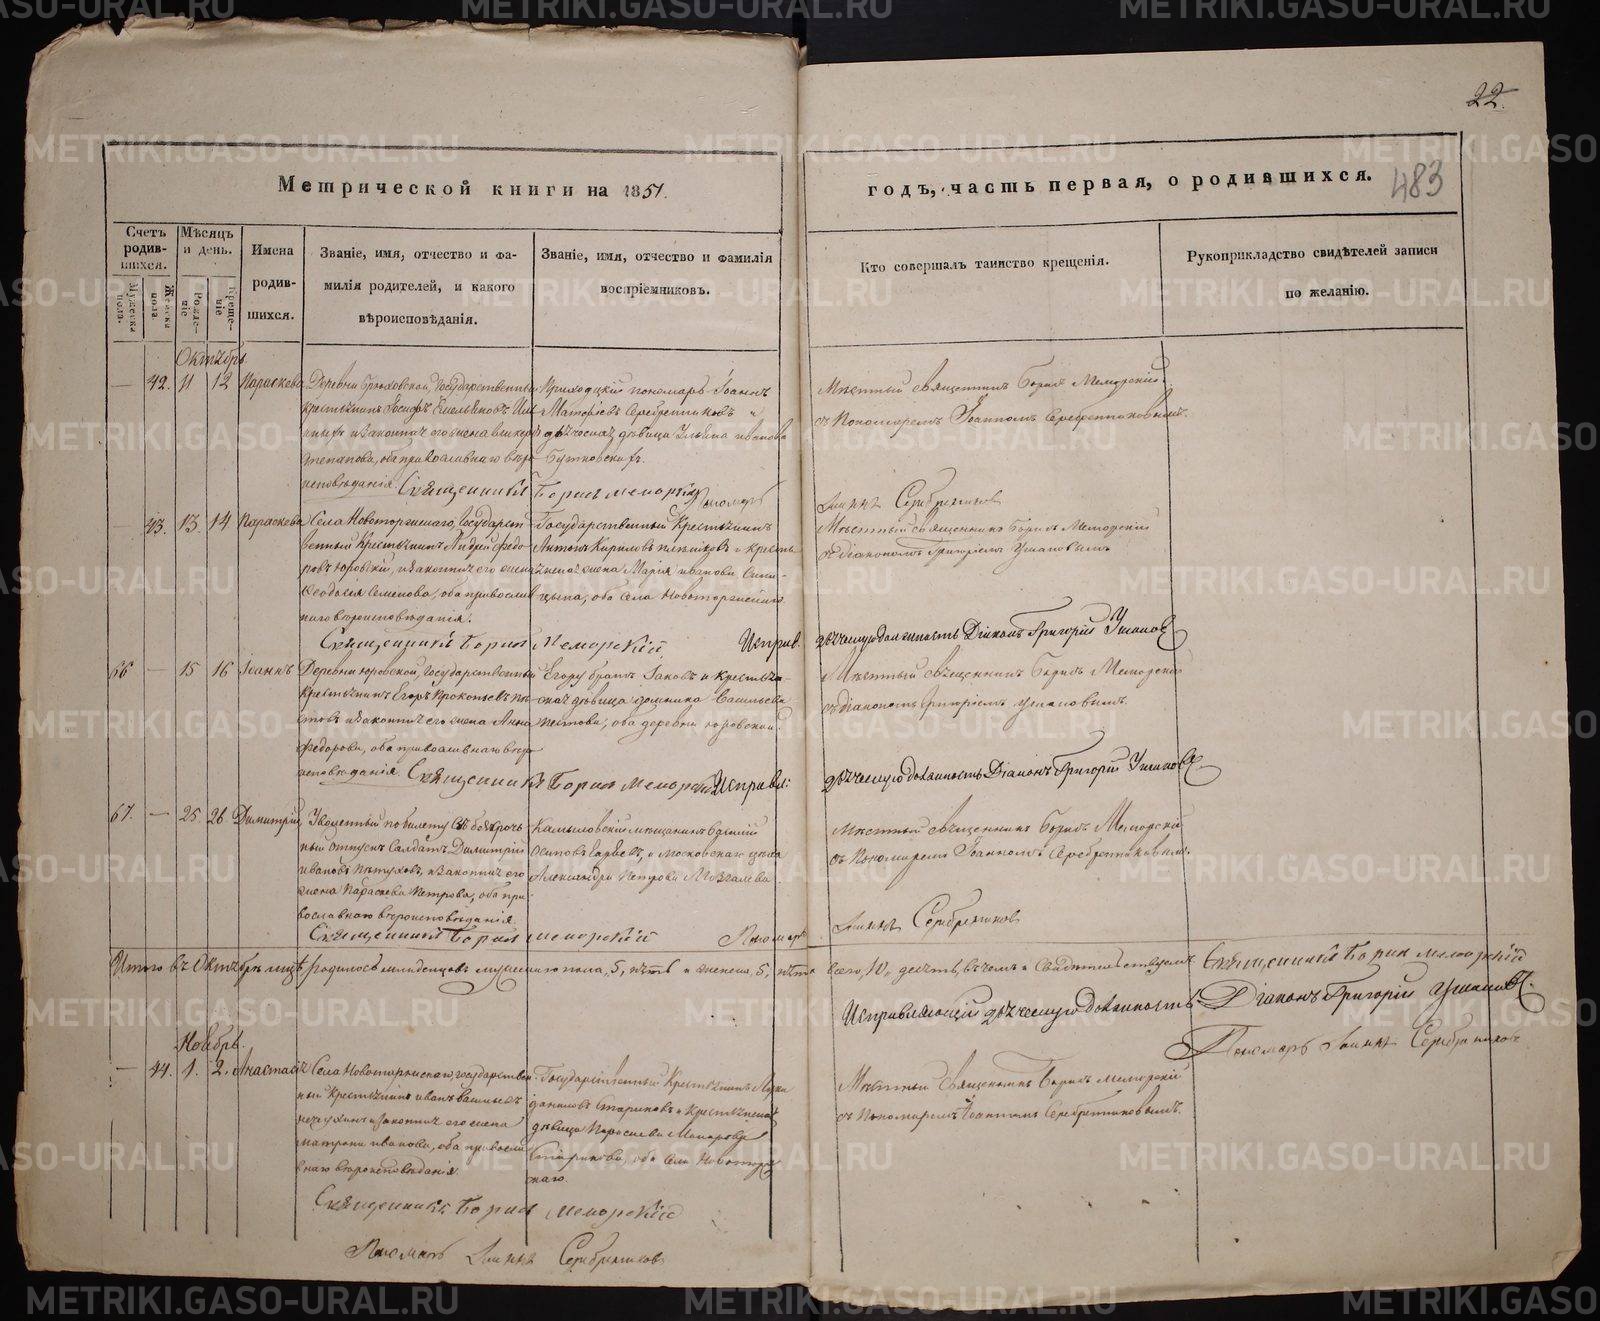 22.
483
Метрической книги на 1851.
годъ, часть первая, о родившихся.
Счетъ родив-шихся.
Мужеска пола.
Женска пола.
Мѣсяцъ и день.
Рожде-ніе
Креще-ніе
Имена родив-шихся.
Званіе, имя, отчество и фа-
милія родителей, и какого
вѣроисповѣданія.
Званіе, имя, отчество и фамилія
воспріемниковъ.
Кто совершалъ таинство крещенія.
Рукоприкладство свидѣтелей записи
по желанію.
Октябрь
42. 11 12 Параскева
Деревни Государственный
крестьянинъ Іосифъ Емельяновъ
и законная его жена
Степанова, оба православнаго вѣро-
исповѣданія.
Приходскій пономарь Іоаннъ
Серебренниковъ и
дѣвица Иванова
Мѣстный священникъ Борисъ Меморскій
съ Пономаремъ Іоанномъ Серебренниковымъ.
Священникъ Борисъ Меморскій
Пономарь Іоаннъ Серебренниковъ
43. 13. 14 Параскева
Села Новоторжскаго, Государст-
венный Крестьянинъ Андрей Ѳедо-
ровъ Юровскій, и законная его жена
Ѳеодосія Семенова, оба православ-
наго вѣроисповѣданія.
Государственный Крестьянинъ
Антонъ Кириловъ и крестья-
нская жена Марія Иванова Сини-
цына, оба села Новоторжскаго.
Мѣстный священникъ Борисъ Меморскій
съ діакономъ Григоріемъ Ушаковымъ
Священникъ Борисъ Меморскій
Исправ. дьяческую должность Діаконъ Григорій Ушаковъ
66 — 15 16 Іоаннъ
Деревни Юровской, Государственный
крестьянинъ Егоръ Прокопьевъ
и законная его жена Анна
Федорова, оба православнаго вѣро-
исповѣданія.
Егору братъ Іаковъ и крестьян-
ская дѣвица Васильева
оба деревни Юровской.
Мѣстный священникъ Борисъ Меморскій
съ діакономъ Григоріемъ Ушаковымъ.
Священникъ Борисъ Меморскій
Исправл: дьяческую должность Діаконъ Григорій Ушаковъ.
67. — 25. 26. Димитрій
Уволенный по билету въ безсроч-
ный отпускъ Солдатъ Димитрій
Ивановъ Пѣтуховъ, и законная его
жена Параскева Петрова, оба пра-
вославнаго вѣроисповѣданія
Камышловскій мѣщанинъ
Осиповъ и Московскаго
Александра Петрова
Мѣстный священникъ Борисъ Меморскій
съ Пономаремъ Іоанномъ Серебренниковымъ.
Священникъ Борисъ Меморскій
Пономарь Іоаннъ Серебренниковъ
Итого въ Октябрѣ м-цѣ родилось младенцовъ мужескаго пола, 5, пять и женска, 5, пять
всего, 10, десять, въ чемъ и свидѣтельствуемъ
Священникъ Борисъ Меморскій
Исправляющій дьяческую должность Діаконъ Григорій Ушаковъ.
Пономарь Іоаннъ Серебренниковъ
Ноябрь.
— 44. 1. 2. Анастасія
Села Новоторжскаго, государствен-
ный Крестьянинъ Иванъ Васильевъ
и законная его жена
Матрона Иванова, оба православ-
наго вѣроисповѣданія.
Государственный Крестьянинъ Лука
Даниловъ Стариковъ и Крестьянская
дѣвица Параскева Макарова
Старикова, оба села Новоторж-
скаго.
Мѣстный Священникъ Борисъ Меморскій
съ Пономаремъ Іоанномъ Серебренниковымъ.
Священникъ Борисъ Меморскій
Пономарь Іоаннъ Серебренниковъ
METRIKI.GASO-URAL.RU